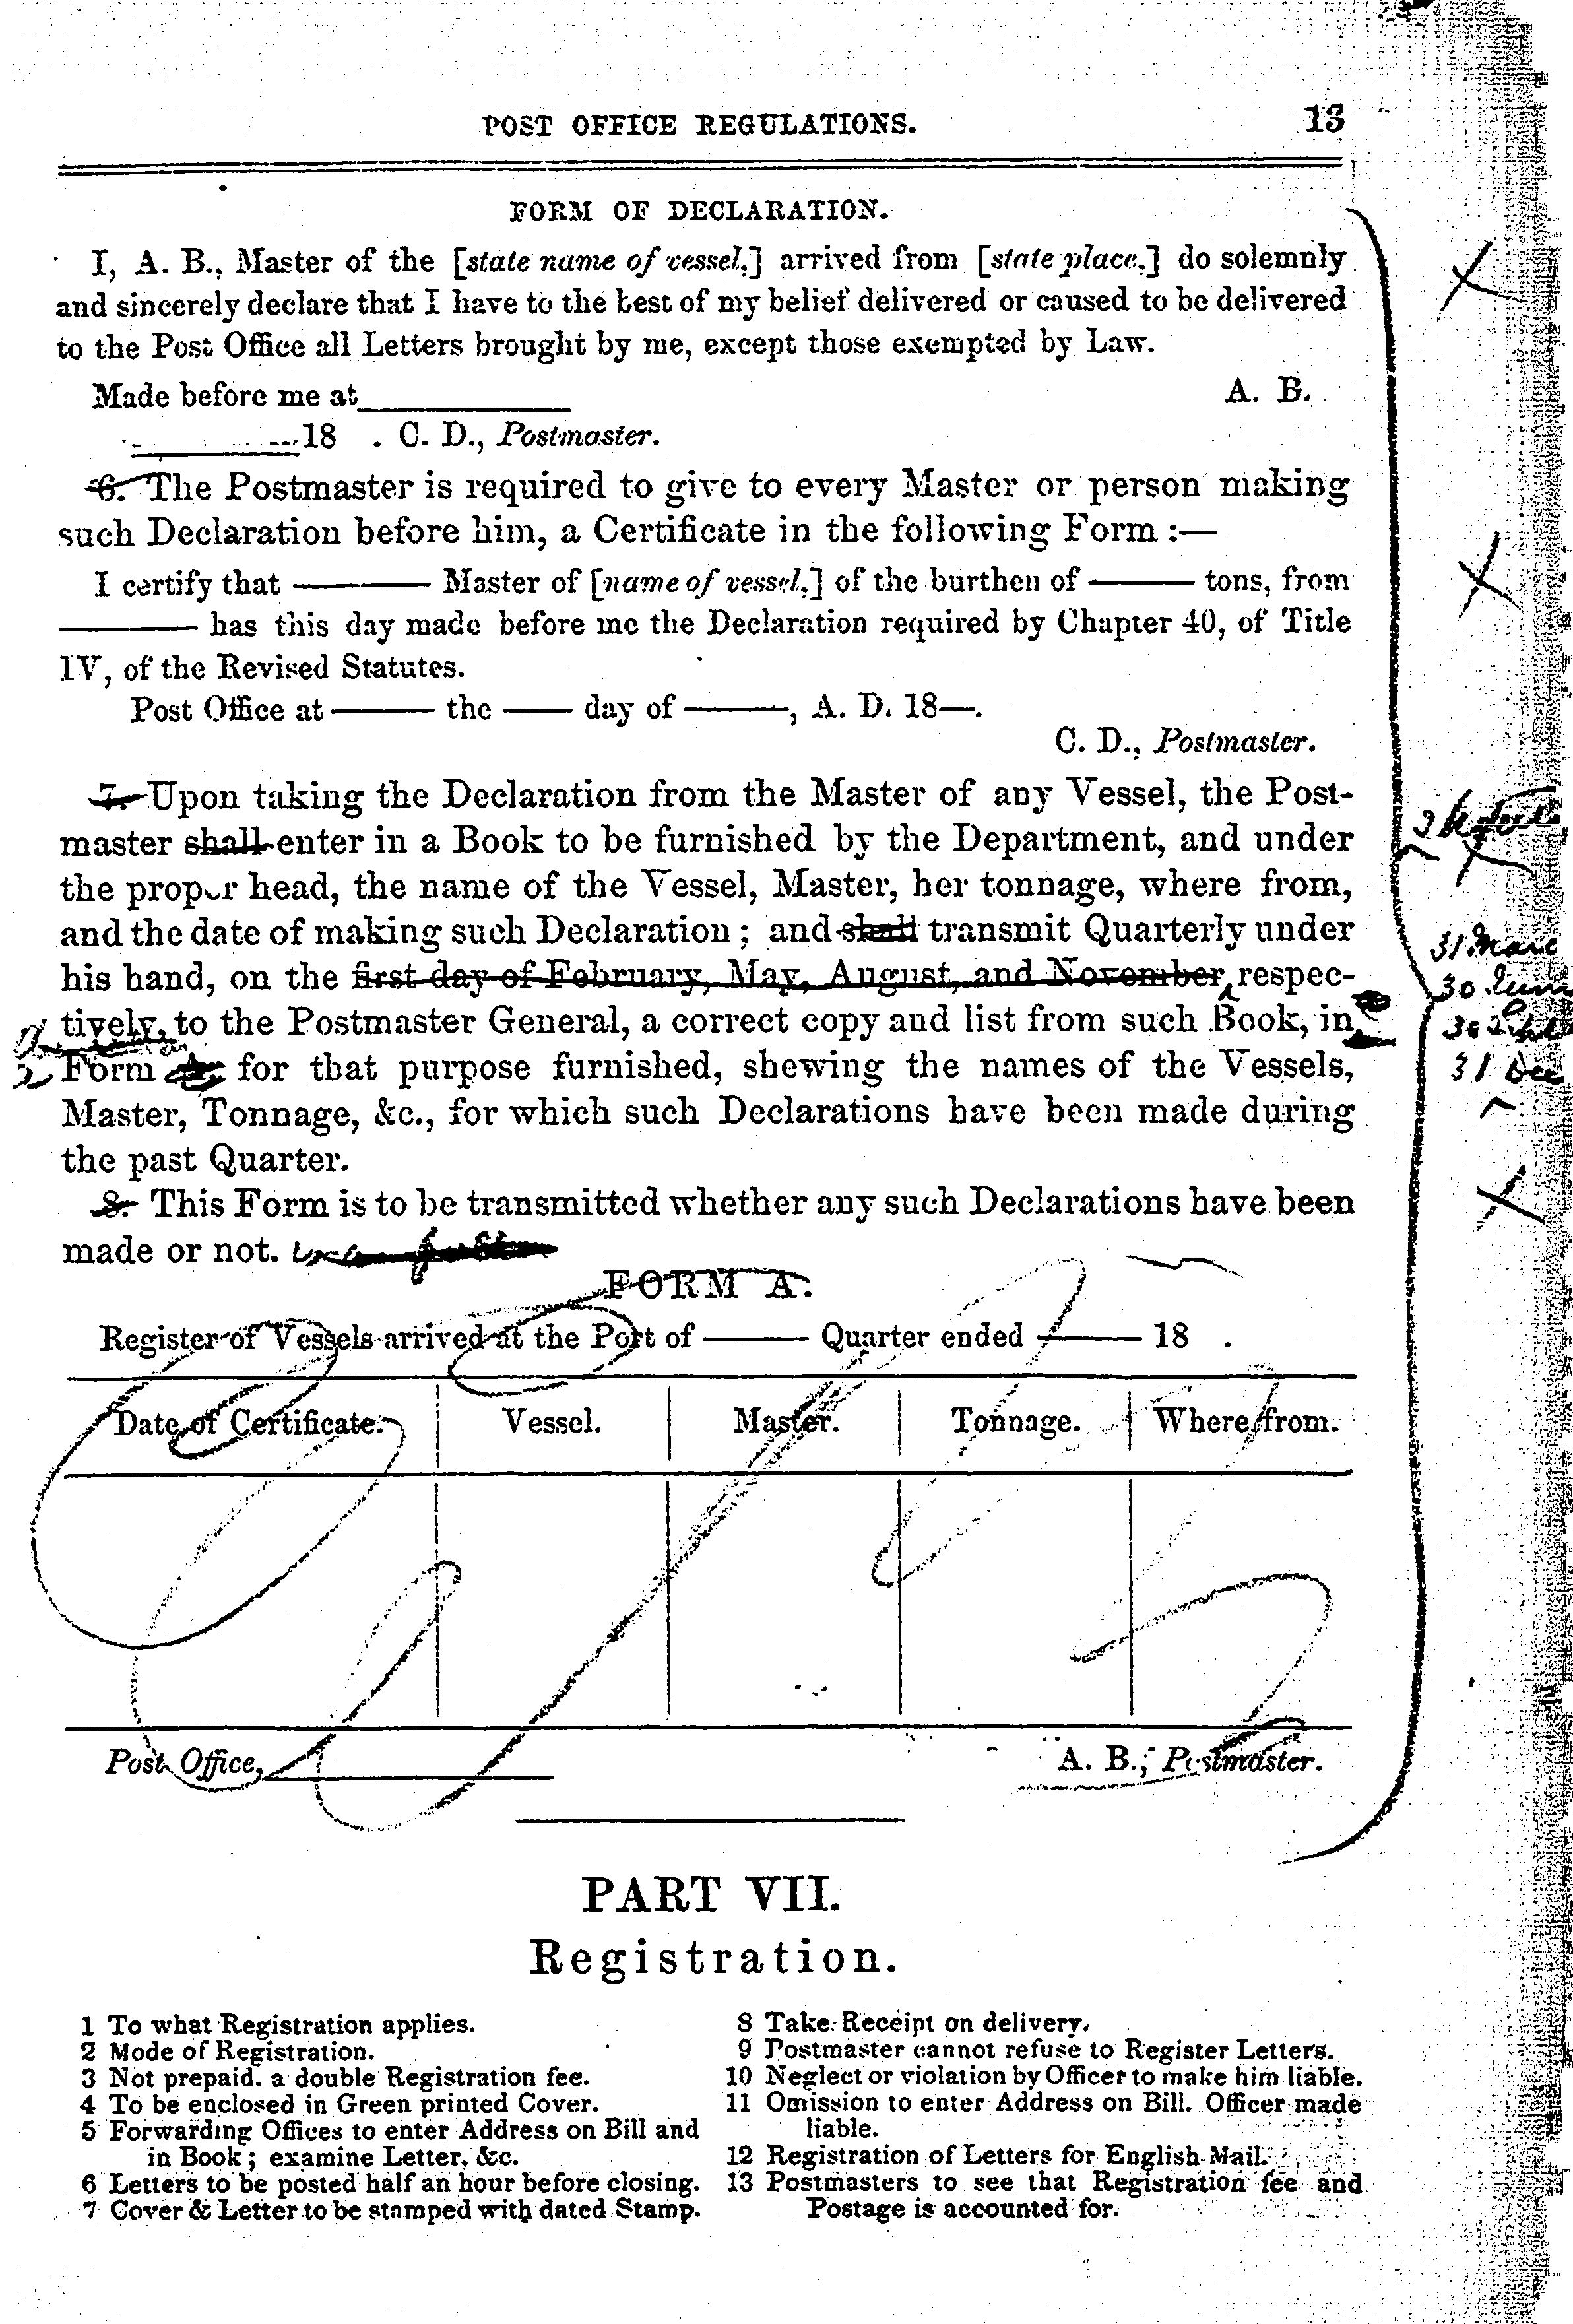 POST OFFICE REGULATIONS. 13
FORM OF DECLARATION.
I, A. B., Master of the [state name of vessel,] arrived from [state place,] do solemnly
and sincerely declare that I have to the best of my belief delivered or caused to be delivered
to the Post Office all Letters brought by me, except those exempted by Law.
Made before me at__________ A. B.
__________18 . C. D., Postmaster.
6. The Postmaster is required to give to every Master or person making
such Declaration before him, a Certificate in the following Form :—
I certify that ——— Master of [name of vessel,] of the burthen of ——— tons, from
——— has this day made before me the Declaration required by Chapter 40, of Title
IV, of the Revised Statutes.
Post Office at ——— the —— day of ———, A. D. 18—.
C. D., Postmaster.
7. Upon taking the Declaration from the Master of any Vessel, the Post-
master shall enter in a Book to be furnished by the Department, and under
the proper head, the name of the Vessel, Master, her tonnage, where from,
and the date of making such Declaration ; and shall transmit Quarterly under
31 Marc
his hand, on the first day of February, May, August, and November, respec-
30 June
tively, to the Postmaster General, a correct copy and list from such Book, in
30
Form for that purpose furnished, shewing the names of the Vessels,
31 Dec
Master, Tonnage, &c., for which such Declarations have been made during
the past Quarter.
8. This Form is to be transmitted whether any such Declarations have been
made or not.
FORM A.
Register of Vessels arrived at the Port of ——— Quarter ended ——— 18 .
Date of Certificate. Vessel. Master. Tonnage. Where from.
Post Office,__________ A. B., Postmaster.
PART VII.
Registration.
1 To what Registration applies.
2 Mode of Registration.
3 Not prepaid. a double Registration fee.
4 To be enclosed in Green printed Cover.
5 Forwarding Offices to enter Address on Bill and
in Book ; examine Letter, &c.
6 Letters to be posted half an hour before closing.
7 Cover & Letter to be stamped with dated Stamp.
8 Take Receipt on delivery.
9 Postmaster cannot refuse to Register Letters.
10 Neglect or violation by Officer to make him liable.
11 Omission to enter Address on Bill. Officer made
liable.
12 Registration of Letters for English Mail.
13 Postmasters to see that Registration fee and
Postage is accounted for.